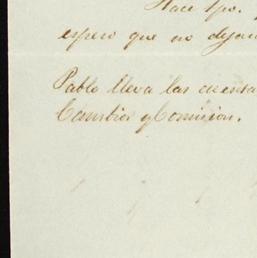 Hace tpo.
espero que no dejar
Pablo lleva las cuenta
Cambios y Comision.